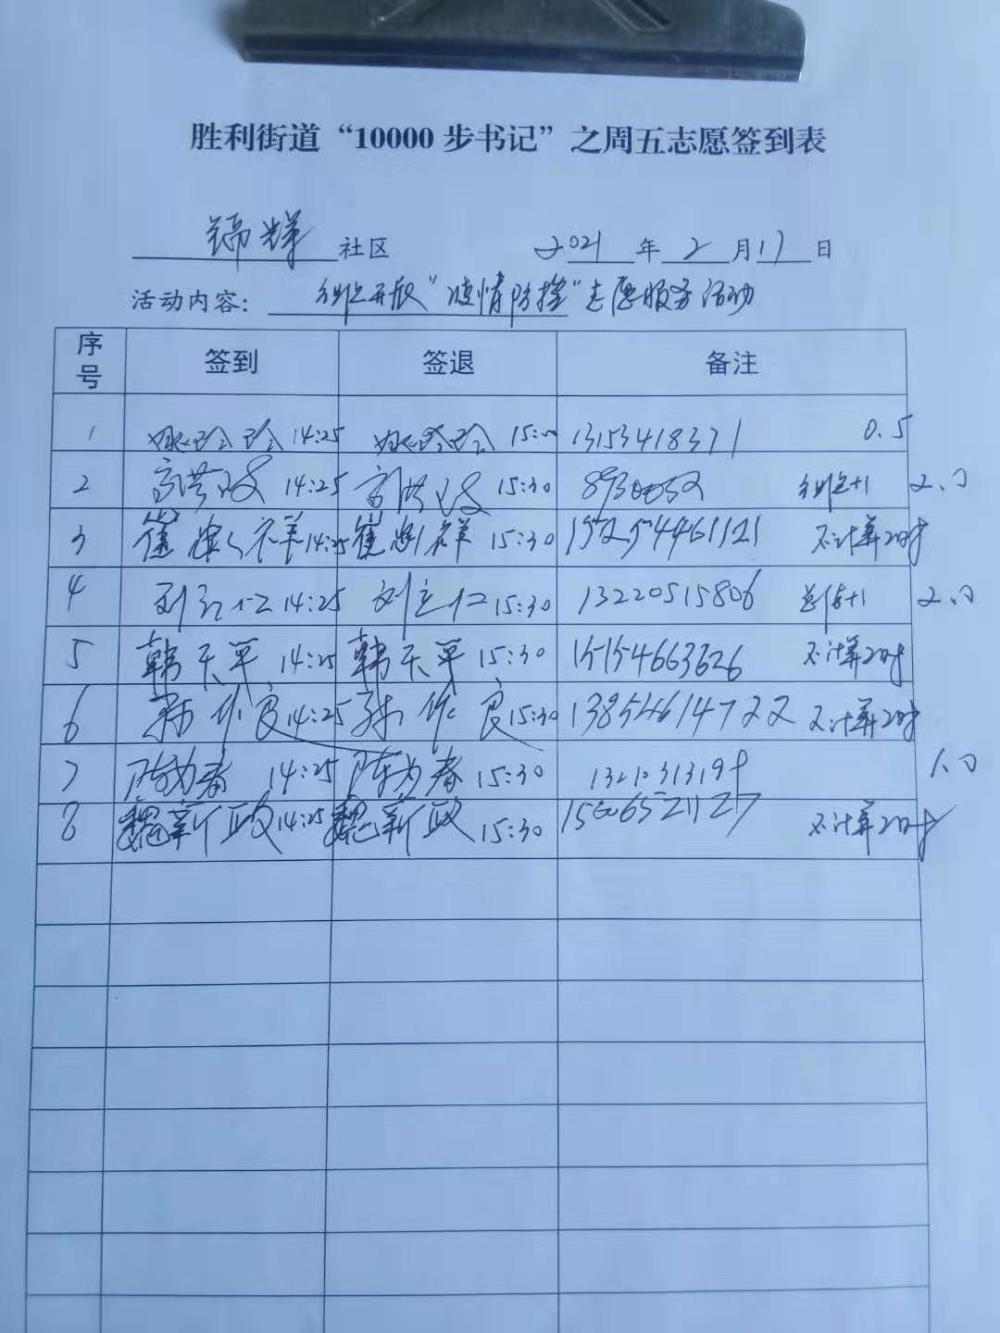 胜利街道“10000步书记”之周五志愿签到表
锦辉 社区 2021 年 2 月 17 日
活动内容： 组织开展“疫情防控”志愿服务活动
序号 签到 签退 备注
1 姚玲玲 14:25 姚玲玲 15:00 13153418371 0.5
2 14:25 15:30 8930052 组织+1 2.0
3 崔 祥 14:25 崔 祥 15:30 不计算2时
4 刘立仁 14:25 刘立仁 15:30 13220515806 总结+1 2.0
5 韩天平 14:25 韩天平 15:30 15154663626 不计算2时
6 作良 14:25 作良 15:30 13854614722 不计算2时
7 陈为春 14:25 陈为春 15:30 1.0
8 魏新政 14:25 魏新政 15:30 15006521127 不计算2时